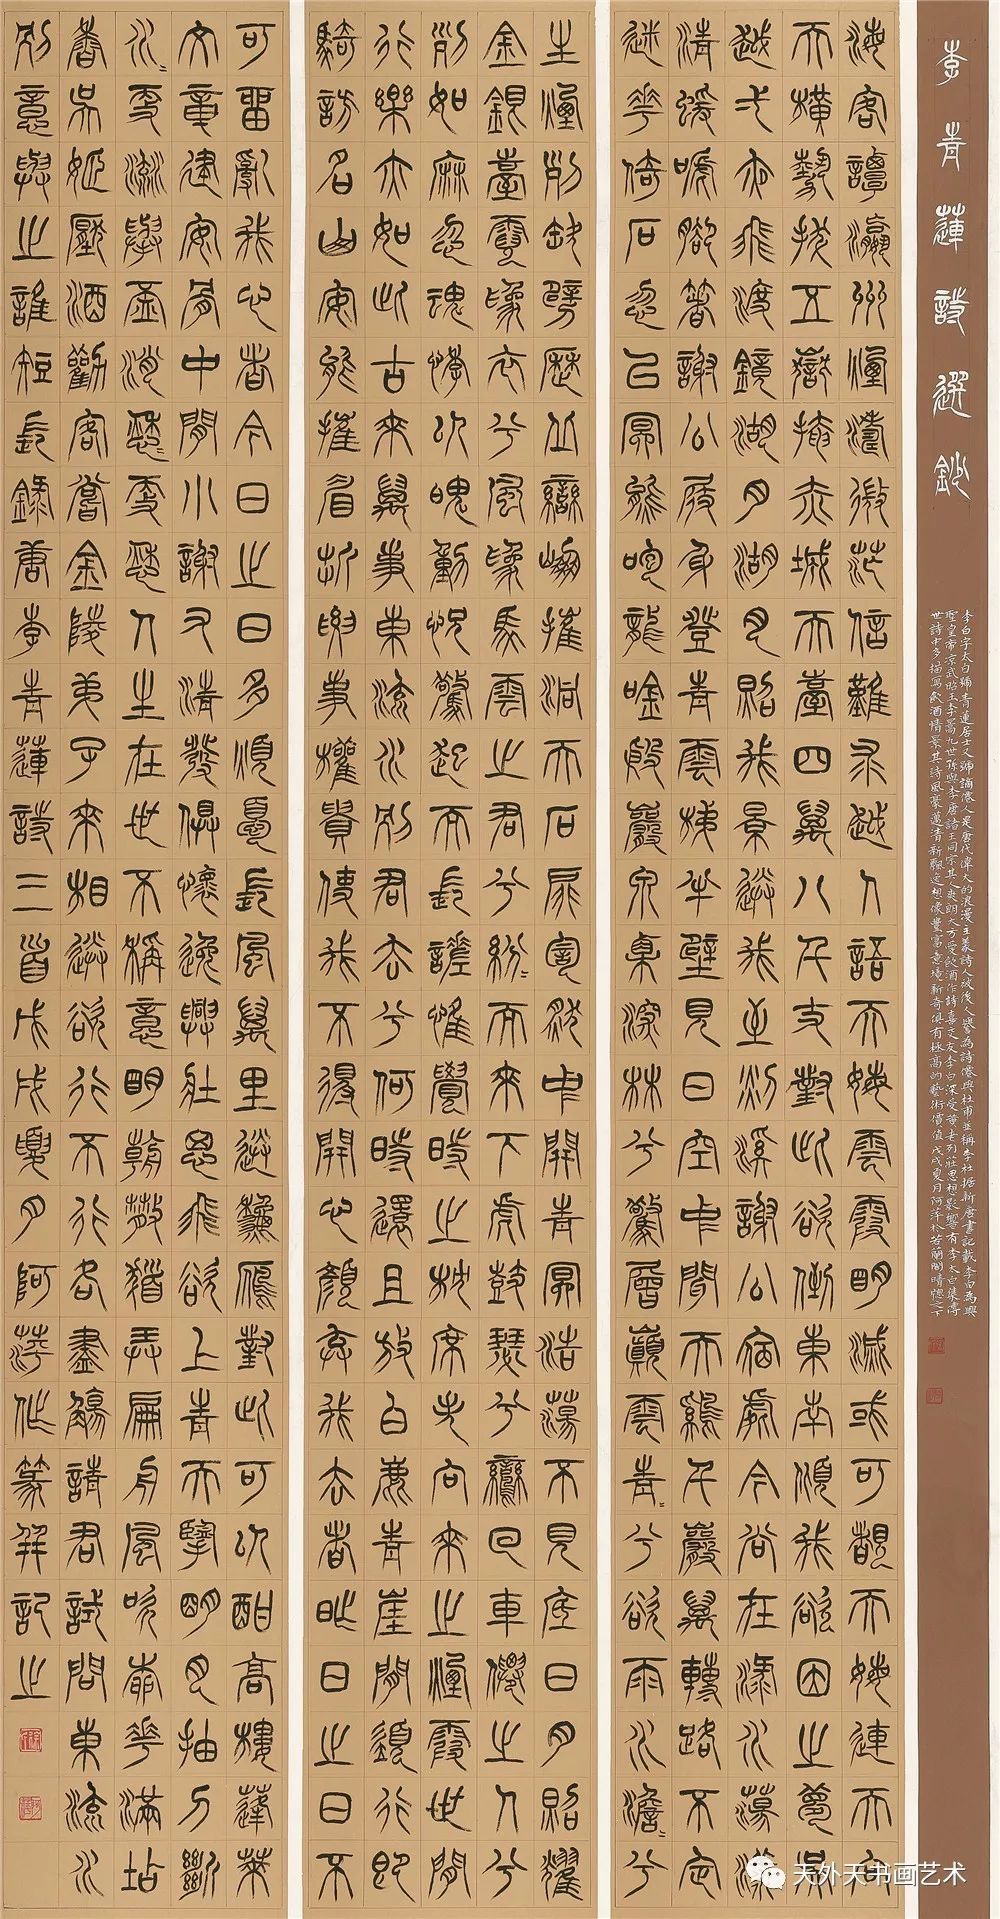 李青蓮詩選鈔
李白字太白號青蓮居士又號謫僊人是唐代偉大的浪漫主義詩人被後人譽為詩僊與杜甫並稱李杜據新唐書記載李白為興
聖皇帝涼武昭王李暠九世孫與李唐諸王同宗其人爽朗大方愛飲酒作詩喜交友李白深受黃老列莊思想影響有李太白集傳
世詩中多描寫飲酒情景其詩風豪邁清新飄逸想像豐富意境新奇俱有極高的藝術價值戊戌夏月阿萍於若蘭閣晴窗之下
海客譚瀛洲煙濤微茫信難求越人語天姥雲霞明滅或可覩天姥連天向
天橫勢拔五嶽掩赤城天臺四萬八千丈對此欲倒東南傾我欲因之夢吳
越一夜飛渡鏡湖月湖月照我景送我至剡溪謝公宿處今尚在淥水蕩漾
清猨啼腳著謝公屐身登青雲梯半壁見日空中聞天雞千巖萬轉路不定
迷花倚石忽已冥熊咆龍吟殷巖泉栗深林兮驚層巔雲青=兮欲雨水澹=兮
生煙列缺霹靂丘巒崩摧洞天石扉訇然中開青冥浩蕩不見底日月照耀
金銀臺霓為衣兮風為馬雲之君兮紛=而來下虎鼓瑟兮鸞回車僊之人兮
列如麻忽魂悸以魄動怳驚起而長嗟惟覺時之枕席失向來之煙霞世間
行樂亦如此古來萬事東流水別君去兮何時還且放白鹿青崖間須行即
騎訪名山安能摧眉折腰事權貴使我不得開心顏棄我去者昨日之日不
可留亂我心者今日之日多煩憂長風萬里送秋雁對此可以酣高樓蓬萊
文章建安骨中間小謝又清發俱懷逸興壯思飛欲上青天擥明月抽刀斷
水=更流舉杯消愁=更愁人生在世不稱意明朝散髮弄扁舟風吹柳花滿店
香吳姬壓酒勸客嘗金陵子弟來相送欲行不行各盡觴請君試問東流水
別意與之誰短長錄唐李青蓮詩三首戊戌夏月阿萍作篆并記之
天外天书画艺术